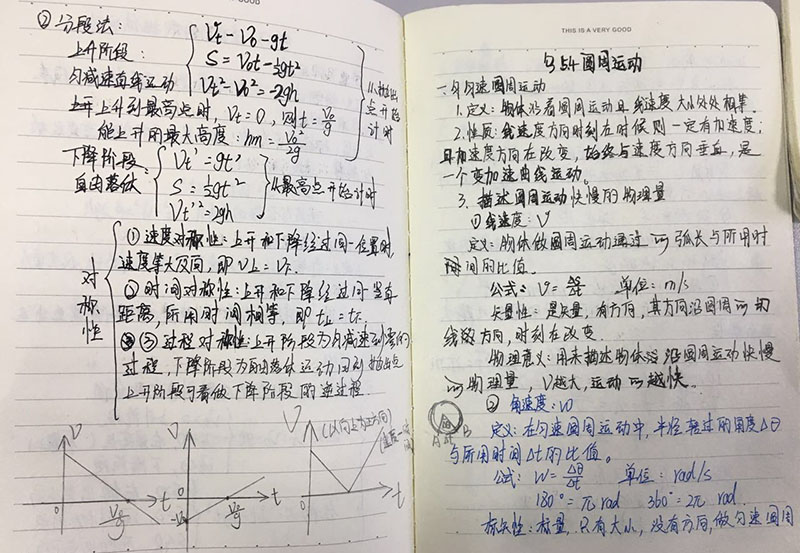 ② 分段法:
上升阶段:
匀减速直线运动
Vt = V0 - gt
S = V0t - ½gt²
Vt² - V0² = -2gh
从抛出点开始计时
上升上升到最高点时, Vt = 0, 则 t = V0/g
能上升的最大高度: hm = V0²/2g
下降阶段:
自由落体
Vt' = gt'
S = ½gt²
Vt'² = 2gh
从最高点开始计时
对称性
① 速度对称性: 上升和下降经过同一位置时,
速度等大反向, 即 V上 = V下.
② 时间对称性: 上升和下降经过同一竖直
距离, 所用时间相等, 即 t上 = t下.
③ 过程对称性: 上升阶段为匀减速到零的
过程, 下降阶段为自由落体运动回到抛出点
上升阶段可看做下降阶段的逆过程.
V
0
V0/g
t
V
0
-V0
V0/g
t
V
(以向上为正方向)
t
THIS IS A VERY GOOD
§5.4 圆周运动
一. 匀速圆周运动
1. 定义: 物体沿着圆周运动且线速度大小处处相等.
2. 性质: 线速度方向时刻在时候则一定有加速度;
且加速度方向在改变, 始终与速度方向垂直, 是
一个变加速曲线运动.
3. 描述圆周运动快慢的物理量
① 线速度: V
定义: 物体做圆周运动通过的弧长与所用时
间的比值.
公式: V = Δs/Δt 单位: m/s
矢量性: 是矢量, 有方向, 其方向沿圆周的切
线方向, 时刻在改变.
物理意义: 用来描述物体沿圆周运动快慢
的物理量, V越大, 运动的越快.
② 角速度: W
A Δt B
定义: 在匀速圆周运动中, 半径转过的角度Δθ
与所用时间Δt的比值。
公式: W = Δθ/Δt 单位: rad/s
180° = π rad 360° = 2π rad
标矢性: 标量, 只有大小, 没有方向, 做匀速圆周